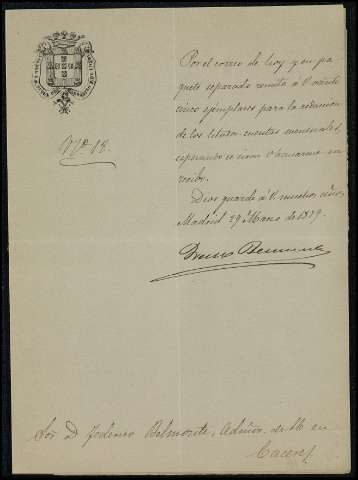 Nº 18.
Por el correo de hoy y en pa-
quete separado remito á V. veinte
cinco ejemplares para la redaccion
de los
cuentas mensuales,
esperando se sirva V. acusarme su
recibo.
Dios guarde á V. muchos años.
Madrid 29 Marzo de 1879.
Sor. D. Federico Belmonte, Admor. de M en
Caceres